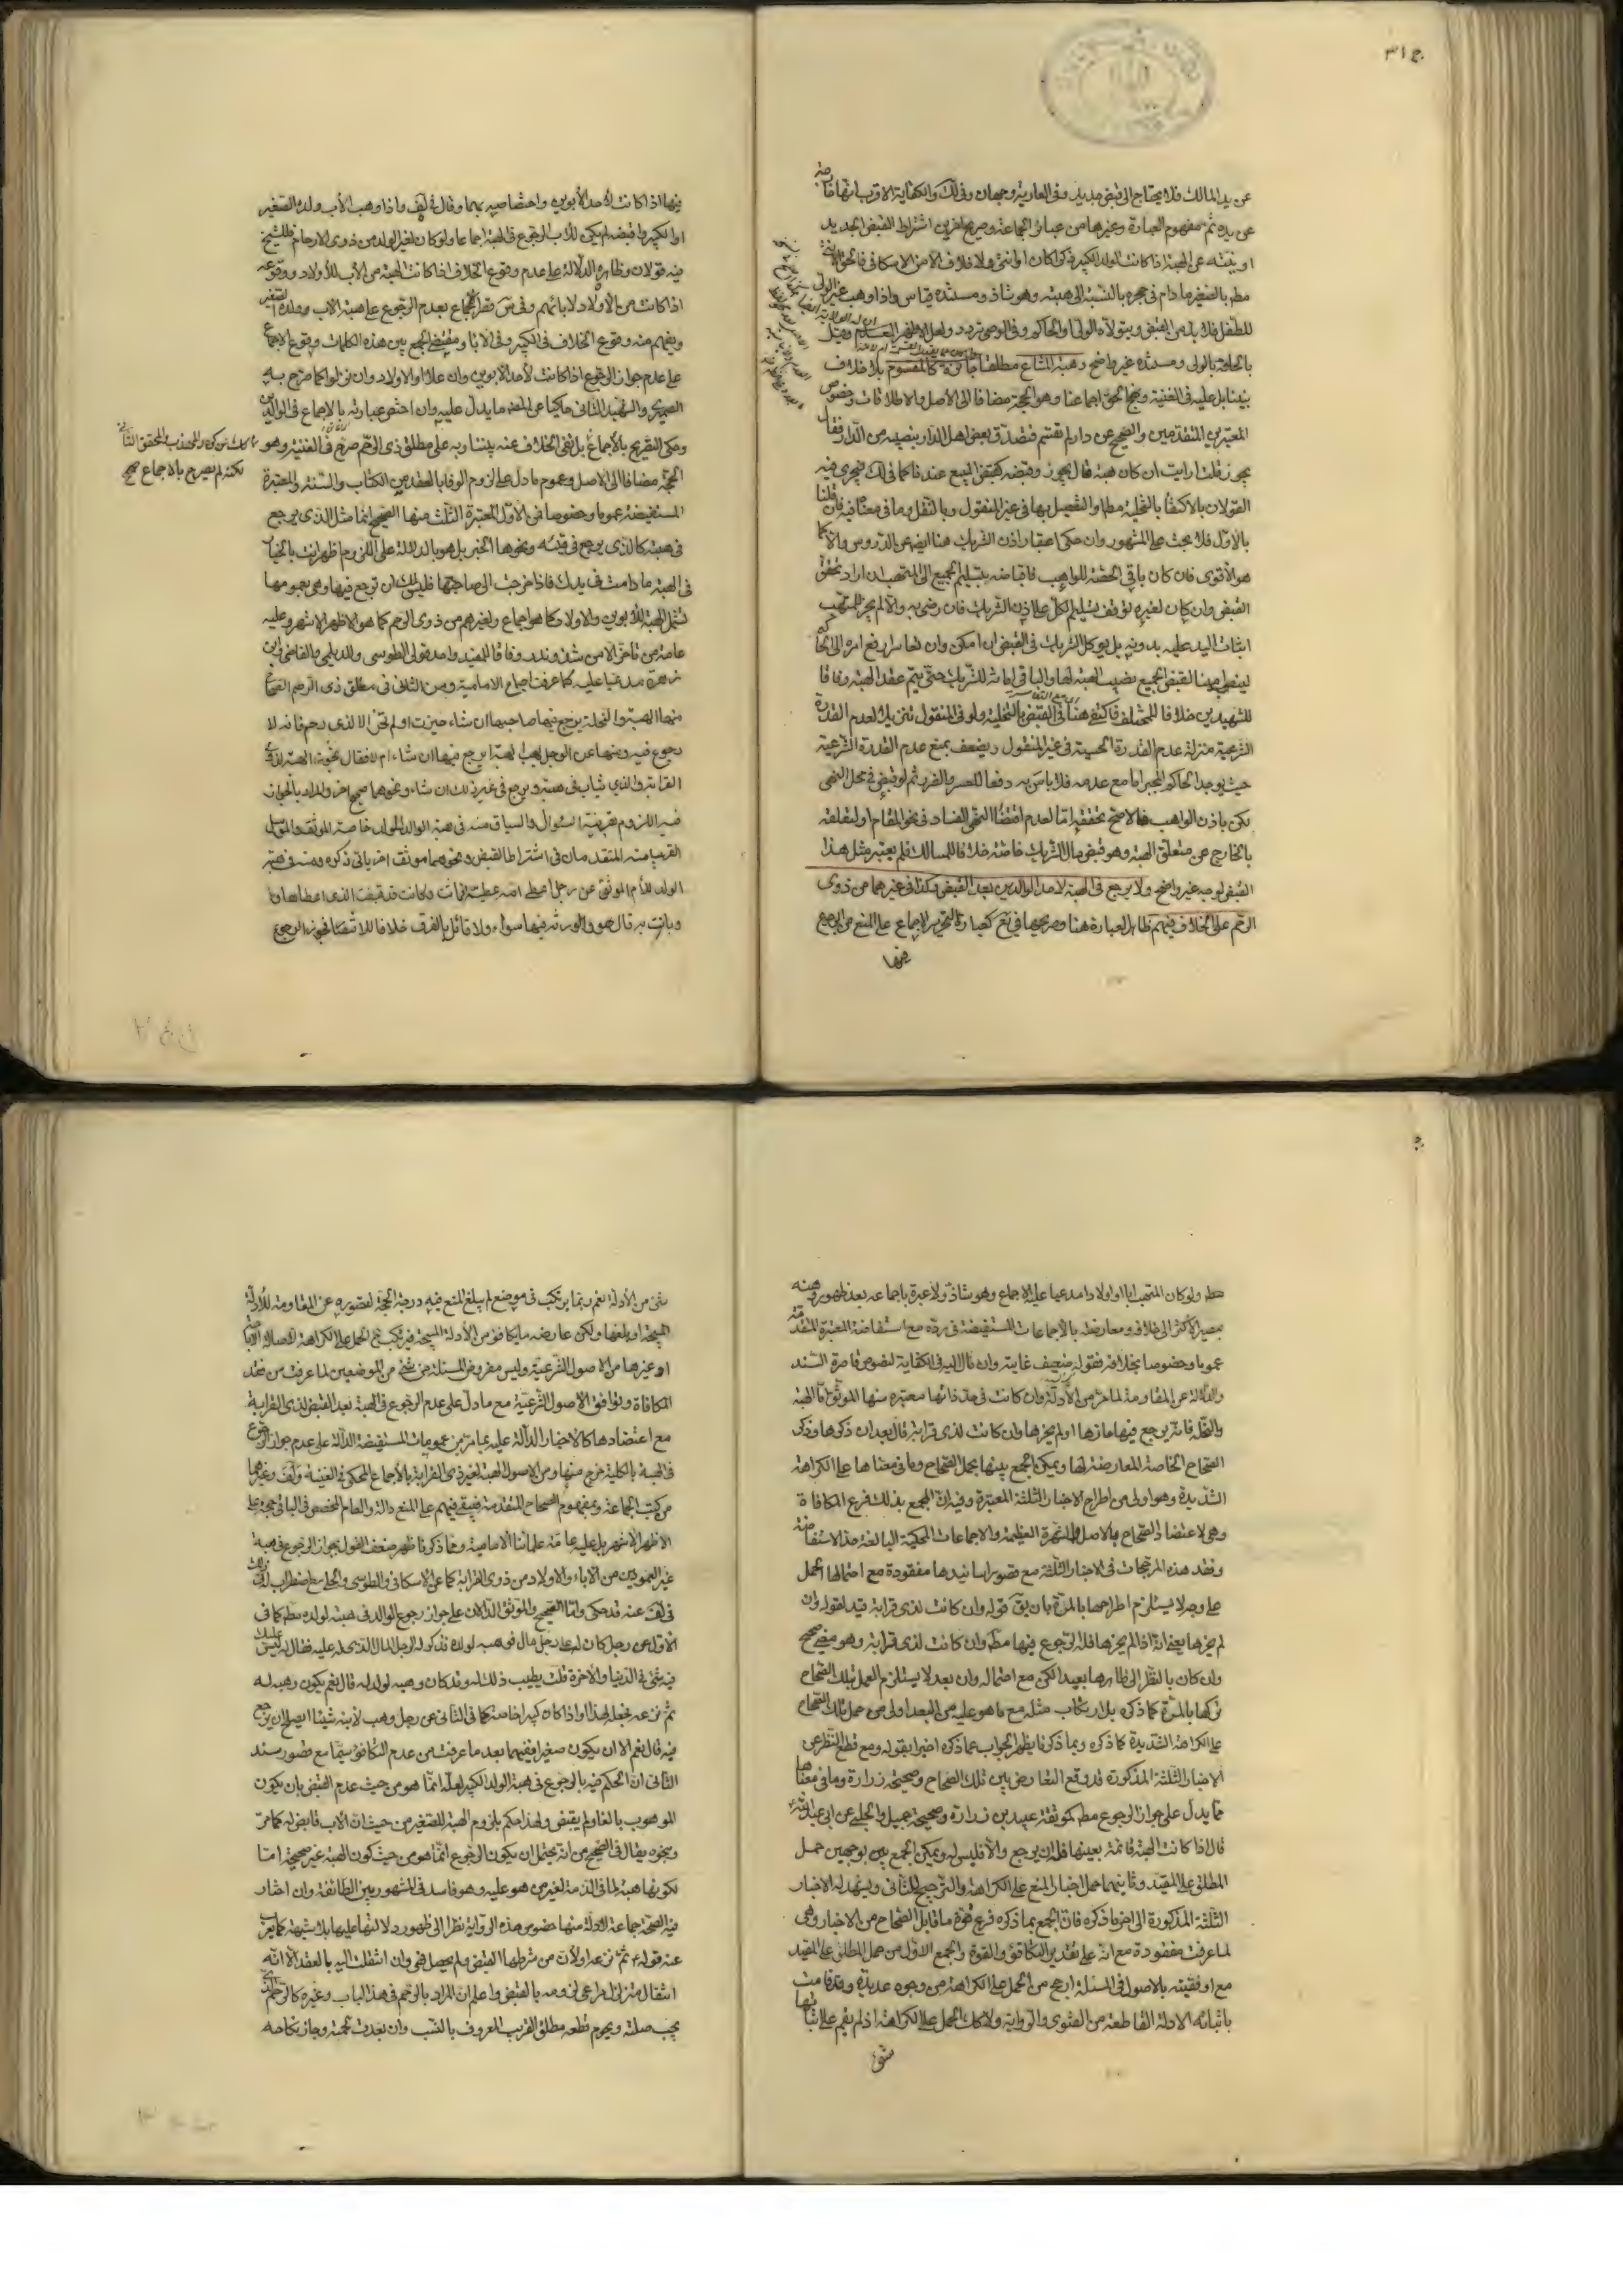 عن يد المالك فلا يحتاج الى قبض جديد وفى العارية وجهان وفى لك والكفاية الاقرب انها قارضة
عن يده ثم مفهوم العبارة وغيرها من عبائر الجماعة وصريح اخرين اشتراط القبض الجديد
او نيته عن الهبة اذا كانت للولد الكبير ذكرا كان او انثى ولا خلاف الا من الاسكافى فالحق الانثى
مطم بالصغير ما دام فى حجره بالنسبة الى هبته وهو شاذ ومستنده قياس واذا وهب غير الولى
للطفل فلا بد من القبض ويتولاه الولى او الحاكم وفى الوصى تردد ولعل الاظهر
بالحاقه بالولى ومستنده غير واضح وهبة المشاع مطلقا جائزة كالمقسوم بلا خلاف
بيننا بل عليه فى الغنية ونهج الحق اجماعنا وهو الحجة مضافا الى الاصل والاطلاقات وخصوص
المعتبرين المتقدمين والصحيح عن دار لم تقسم فتصدق بعض اهل الدار بنصيبه من الدار فقال
يجوز قلت ارايت ان كان هبة قال يجوز وقبضه كقبض المبيع عندنا كما فى لك فيجرى فيه
القولان بالاكتفاء بالتخلية مطلقا والتفصيل بها فى غير المنقول وبالنقل وما فى معناه فيه فان قلنا
بالاول فلا بحث على المشهور وان حكى اعتبار اذن الشريك هنا ايضا عن الدروس والا كما
هو الاقوى فان كان باقى الحصة للواهب فاقباضه بتسليم الجميع الى المتهب ان اراد تحقق
القبض وان كان لغيره توقف تسليم الكل على اذن الشريك فان رضى به والا لم يجز للمتهب
اثبات اليد عليه بدونه بل يوكل الشريك فى القبض ان امكن وان تعاسرا رفع امره الى الحاكم
لينصب امينا لقبض الجميع نصيب الهبة لها والباقى امانة للشريك حتى يتم عقد الهبة وفاقا
للشهيدين خلافا للمختلف فاكتفى هنا فى القبض بالتخلية ولو فى المنقول تنزيلا لعدم القدرة
الشرعية منزلة عدم القدرة الحسية فى غير المنقول ويضعف بمنع عدم القدرة الشرعية
حيث يوجد الحاكم المجبر اما مع عدمه فلا باس به دفعا للعسر والضرر ثم لو قبض فى محل النهى
لكن باذن الواهب فالاصح تحققه اما لعدم اقتضاء النهى الفساد فى نحو المقام او لتعلقه
بالخارج عن متعلق الهبة وهو قبض مال الشريك خاصة خلافا للمسالك فلم يعتبر مثل هذا
القبض لوجه غير واضح ولا يرجع فى الهبة لاحد الوالدين بعد القبض وكذا فى غيرهما من ذوى
الرحم على الخلاف فيهم ظاهر العبارة هنا وصريحها فى يع كعبارة التحرير الاجماع على المنع من الرجوع
فيها
فيها اذا كانت لاحد الابوين واختصاصه بهما وقال فى لف واذا وهب الاب ولده الصغير
او الكبير واقبضه لم يكن للاب الرجوع فى الهبة اجماعا ولو كان لغير الولد من ذوى الارحام فللشيخ
فيه قولان وظاهره الدلالة على عدم وقوع الخلاف اذا كانت الهبة من الاب للاولاد ووقوعه
اذا كانت من الاولاد لابائهم وفى س نقل الاجماع بعدم الرجوع على هبة الاب ولده الصغير
ويفهم منه وقوع الخلاف فى الكبير وفى الاباء ومقتضى الجمع بين هذه الكلمات وقوع الاجماع
على عدم جواز الرجوع اذا كانت لاحد الابوين وان علا او الاولاد وان نزلوا كما صرح به
الصيمرى والشهيد الثانى حاكيا عن المهذب ما يدل عليه وان اختص عبارته بالاجماع فى الوالدين
وحكى التصريح بالاجماع بل نفى الخلاف عنه بيننا وبه على مطلق ذى الرحم صرح فى الغنية وهو
لكنه لم يصرح بالاجماع صح
الحجة مضافا الى الاصل وعموم ما دل على لزوم الوفاء بالعقد من الكتاب والسنة والمعتبرة
المستفيضة عموما وخصوصا فمن الاول المعتبرة الثلث منها الصحيح انما مثل الذى يرجع
فى هبته كالذى يرجع فى قيئه ونحوها الخبر بل هو بالدلالة على اللزوم اظهر انت بالخيار
فى الهبة ما دامت فى يدك فاذا خرجت الى صاحبها فليس لك ان ترجع فيها وهى بعمومها
تشمل الهبة للابوين والاولاد كما هو اجماع ولغيرهم من ذوى الرحم كما هو الاظهر الاشهر وعليه
عامة من تاخر الا من شذ وندر وفاقا للمفيد واحد قولى الطوسى والديلمى والقاضى وابن
زهرة مدعيا عليه كما عرفت اجماع الامامية ومن الثانى فى مطلق ذى الرحم الصحاح
منها الهبة والنحلة يرجع فيها صاحبها ان شاء حيزت او لم تحز الا لذى رحم فانه لا
رجوع فيه ومنها عن الرجل يهب الهبة ايرجع فيها ان شاء ام لا فقال تجوز الهبة لذوى
القرابة والذى يثاب فى هبته ويرجع فى غير ذلك ان شاء ونحوهما صحيح اخر والمراد بالجواز
فيه اللزوم بقرينة السؤال والسياق ومنه فى هبة الوالد لولده خاصة الموثق والمرسل
القريب منه المتقدمان فى اشتراط القبض ونحوهما موثق اخر ياتى ذكره ومنه فى هبة
الولد للام الموثق عن رجل اعطى امه عطية فماتت وكانت قد قبضت الذى اعطاها و
وبانت به قال هو والورثة فيها سواء ولا قائل بالفرق خلافا للانتصار فجوز الرجوع
مطم ولو كان المتهب ابا او اولادا مدعيا عليه الاجماع وهو شاذ ولا عبرة باجماعه بعد ظهور وهنه
بمصير الاكثر الى خلافه ومعارضته بالاجماعات المستفيضة فى رده مع استفاضة المعتبرة المتقدمة
عموما وخصوصا بخلافه فقوله ضعيف غايته وان مال اليه فى الكفاية لنصوص قاصرة السند
والدلالة عن المقاومة لما مر من الادلة وان كانت فى حد ذاتها معتبرة منها الموثق اما الهبة
والنحلة فانه يرجع فيها حازها او لم يحزها وان كانت لذى قرابة قال بعد ان ذكرها وذكر
الصحاح الخاصة المعارضة لها ويمكن الجمع بينها بحمل الصحاح وما فى معناها على الكراهة
الشديدة وهو اولى من اطراح الاخبار الثلثة المعتبرة وفيه ان الجمع بذلك فرع المكافاة
وهى لاعتضاد الصحاح بالاصل والشهرة العظيمة والاجماعات المحكية البالغة حد الاستفاضة
وفقد هذه المرجحات فى الاخبار الثلثة مع قصور اسانيدها مفقودة مع احتمالها الحمل
على وجه لا يستلزم اطراحها بالمرة بان يق قوله وان كانت لذى قرابة قيد لقوله وان
لم يحزها يعنى انه اذا لم يحزها فله الرجوع فيها مطم وان كانت لذى قرابة وهو معنى صحيح
وان كان بالنظر الى ظاهرها بعيد لكن مع احتماله وان بعد لا يستلزم العمل بتلك الصحاح
تركها بالمرة كما ذكره بل ارتكاب مثله مع ما هو عليه من البعد اولى من حمل تلك الصحاح
على الكراهة الشديدة كما ذكره وبما ذكرنا يظهر الجواب عما ذكره اخيرا بقوله ومع قطع النظر عن
الاخبار الثلثة المذكورة قد وقع التعارض بين تلك الصحاح وصحيحة زرارة وما فى معناها
مما يدل على جواز الرجوع مطم كموثقة عبيد بن زرارة وصحيحة جميل والحلبى عن ابى عبد الله
قال اذا كانت الهبة قائمة بعينها فله ان يرجع والا فليس له ويمكن الجمع بين بوجهين حمل
المطلق على المقيد وثانيهما حمل اخبار المنع على الكراهة والترجيح للثانى ويشهد له الاخبار
الثلثة المذكورة الى اخر ما ذكره فان الجمع بما ذكره فرع قوة ما قابل الصحاح من الاخبار وهى
لما عرفت مفقودة مع انه على تقدير التكافؤ والقوة والجمع الاول من حمل المطلق على المقيد
مع اوفقيته بالاصول فى المسئلة ارجح من الحمل على الكراهة من وجوه عديدة وقد قامت
باثباته الادلة القاطعة من الفتوى والرواية ولا كك الحمل على الكراهة اذ لم يقم على اثباتها
شىء
شىء من الادلة نعم ربما يرتكب فى موضع لم يبلغ المنع فيه درجة الحجة لقصوره عن المقاومة للادلة
المبيحة او بلغها ولكن عارضه ما يكافؤه من الادلة المبيحة فيرتكب ثم الحمل على الكراهة لاصالة الاباحة
او غيرها من الاصول الشرعية وليس مفروض المسئلة من شىء من الموضعين لما عرفت من فقد
المكافاة وتوافق الاصول الشرعية مع ما دل على عدم الرجوع فى الهبة بعد القبض لذى القرابة
مع اعتضادها كالاخبار الدالة عليه بما مر من عمومات المستفيضة الدالة على عدم جواز الرجوع
فى الهبة بالكلية خرج منها ومن الاصول الهبة لغير ذى القرابة بالاجماع المحكى فى الغنية ولف وغيرهما
من كتب الجماعة وبمفهوم الصحاح المتقدمة فيبقى فيهم على المنع دالة والعام المخصص فى الباقى حجة على
الاظهر الاشهر بل عليه عامة علمائنا الامامية ومما ذكرنا ظهر ضعف القول بجواز الرجوع فى هبة
غير العمودين من الاباء والاولاد من ذوى القرابة كما عن الاسكافى والطوسى والحلى مع اضطراب
فى لف عنه قد حكى واما الصحيح والموثق الدالان على جواز رجوع الوالد فى هبته لولده مطم كما فى
الاول عن رجل كان له على رجل مال فوهبه لولده فذكر له الرجل المال الذى له عليه فقال له ليس عليك
فيه شىء فى الدنيا والاخرة قلت يطيب ذلك له وقد كان وهبه لولد له قال نعم يكون وهبه له
ثم نزعه فجعله لهذا او اذا كان كبيرا خاصة كما فى الثانى عن رجل وهب لابنه شيئا ايصلح ان يرجع
فيه قال نعم الا ان يكون صغيرا ففيهما بعد ما عرفت من عدم التكافؤ سيما مع قصور سند
الثانى ان الحكم فيه بالرجوع فى هبة الولد الكبير لعله انما هو من حيث عدم القبض بان يكون
الموهوب بالغا ولم يقبض ولهذا حكم بلزوم الهبة للصغير من حيث ان الاب قابض له كما مر
وبنحوه يقال فى الصحيح من انه يحتمل ان يكون الرجوع انما هو من حيث كون الهبة غير صحيحة اما
لكونها هبة لما فى الذمة لغير من هو عليه وهو فاسد فى المشهور بين الطائفة وان اختار
فيه الصحة جماعة لادلة منها خصوص هذه الرواية نظرا الى ظهور دلالتها عليها بلا شبهة كما يعرب
عنه قوله ع ثم نزعه او لان من شرطها القبض ولم يحصل فهى وان انتقلت اليه بالعقد الا انه
انتقال متزلزل يراعى لزومه بالقبض واعلم ان المراد بالرحم فى هذا الباب وغيره كالرحم الذى
يجب صلته ويحرم قطعه مطلق القريب المعروف بالنسب وان بعدت لحمته وجاز نكاحه